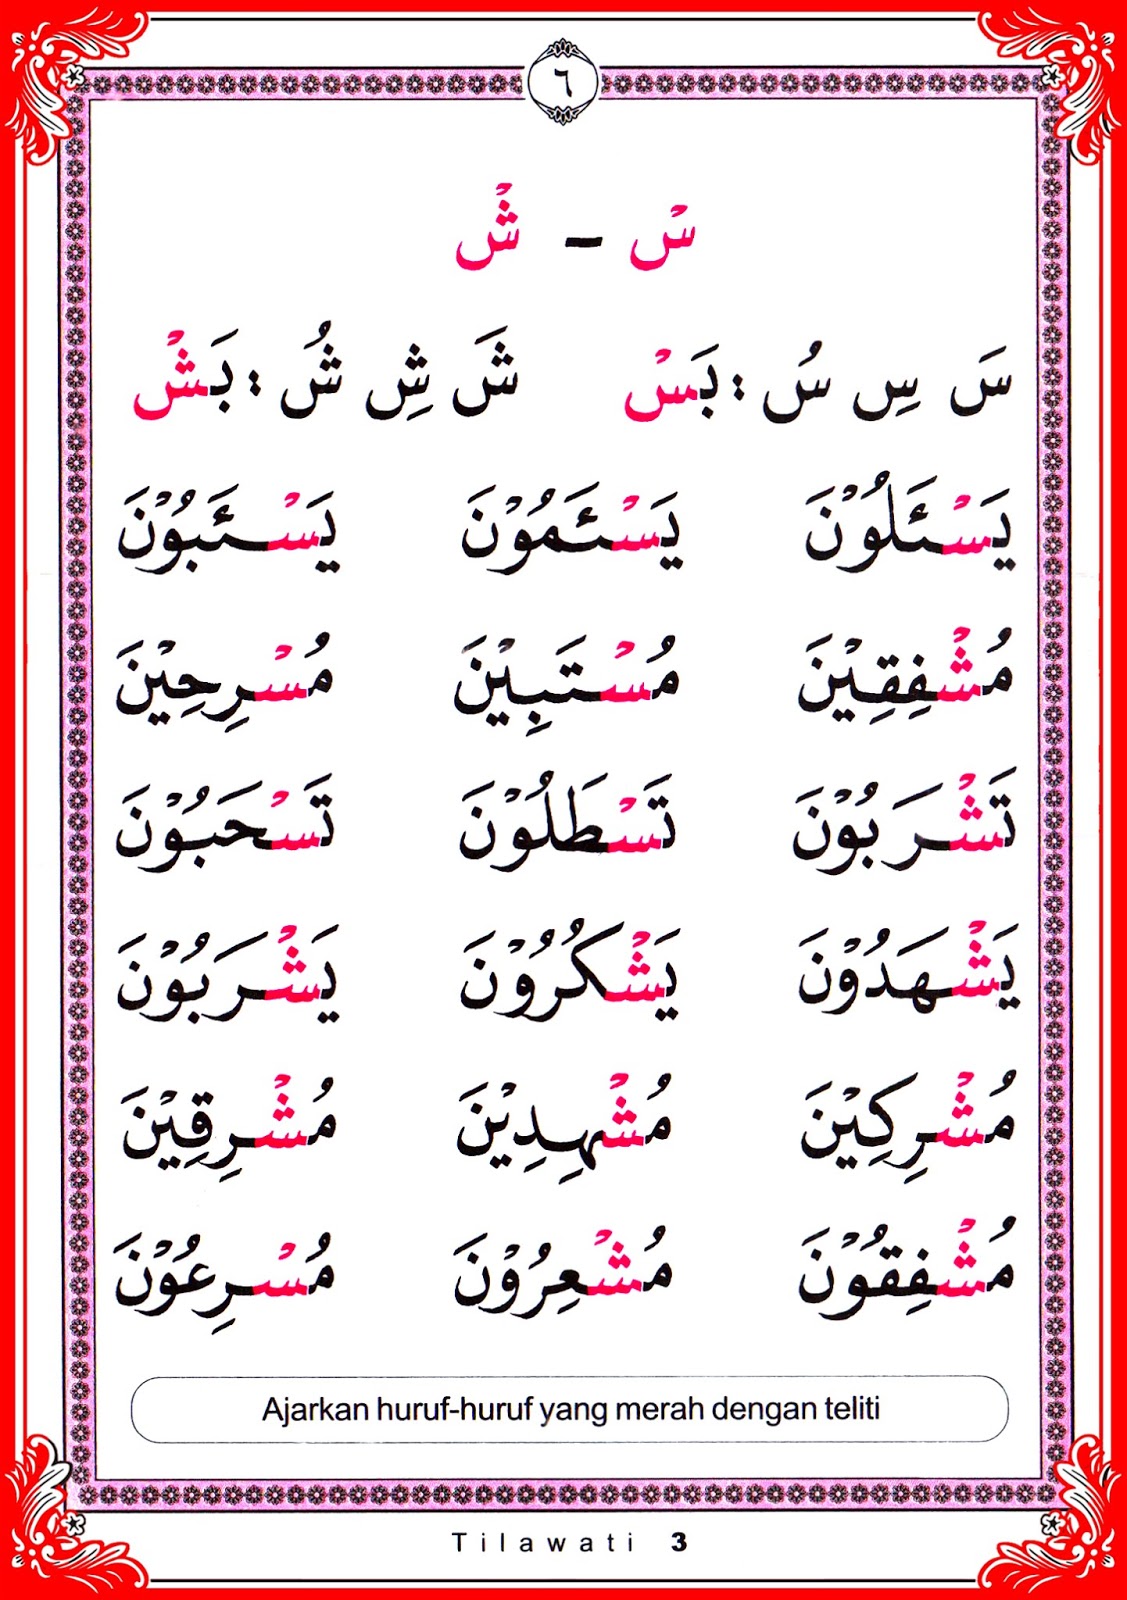 ٦
سْ – شْ
سَ سِ سُ : بَسْ شَ شِ شُ : بَشْ
يَسْئَلُوْنَ يَسْئَمُوْنَ يَسْئَبُوْنَ
مُشْفِقِيْنَ مُسْتَبِيْنَ مُسْرِحِيْنَ
تَشْرَبُوْنَ تَسْطَلُوْنَ تَسْحَبُوْنَ
يَشْهَدُوْنَ يَشْكُرُوْنَ يَشْرَبُوْنَ
مُشْرِكِيْنَ مُشْهِدِيْنَ مُشْرِقِيْنَ
مُشْفِقُوْنَ مُشْعِرُوْنَ مُسْرِعُوْنَ
Ajarkan huruf-huruf yang merah dengan teliti
Tilawati 3